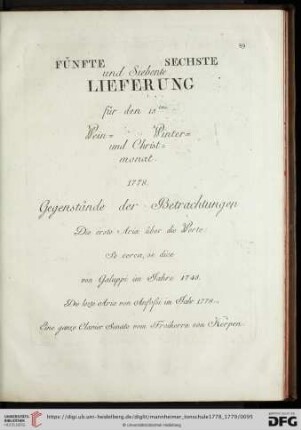 29
FÜNFTE SECHSTE
und Siebente
LIEFERUNG
für den 15ten
Wein= Winter=
und Christ=
monat.
1778.
Gegenstände der Betrachtungen
Die erste Aria über die Worte
Se cerca, se dice
von Galuppi im Jahre 1740.
Die lezte Aria von Anfossi im Jahr 1778.
Eine ganze Clavier Sonate von Freiherrn von Kerpen.
UNIVERSITÄTS-
BIBLIOTHEK
HEIDELBERG
https://digi.ub.uni-heidelberg.de/diglit/mannheimer_tonschule1778_1779/0091
© Universitätsbibliothek Heidelberg
gefördert durch die
DFG